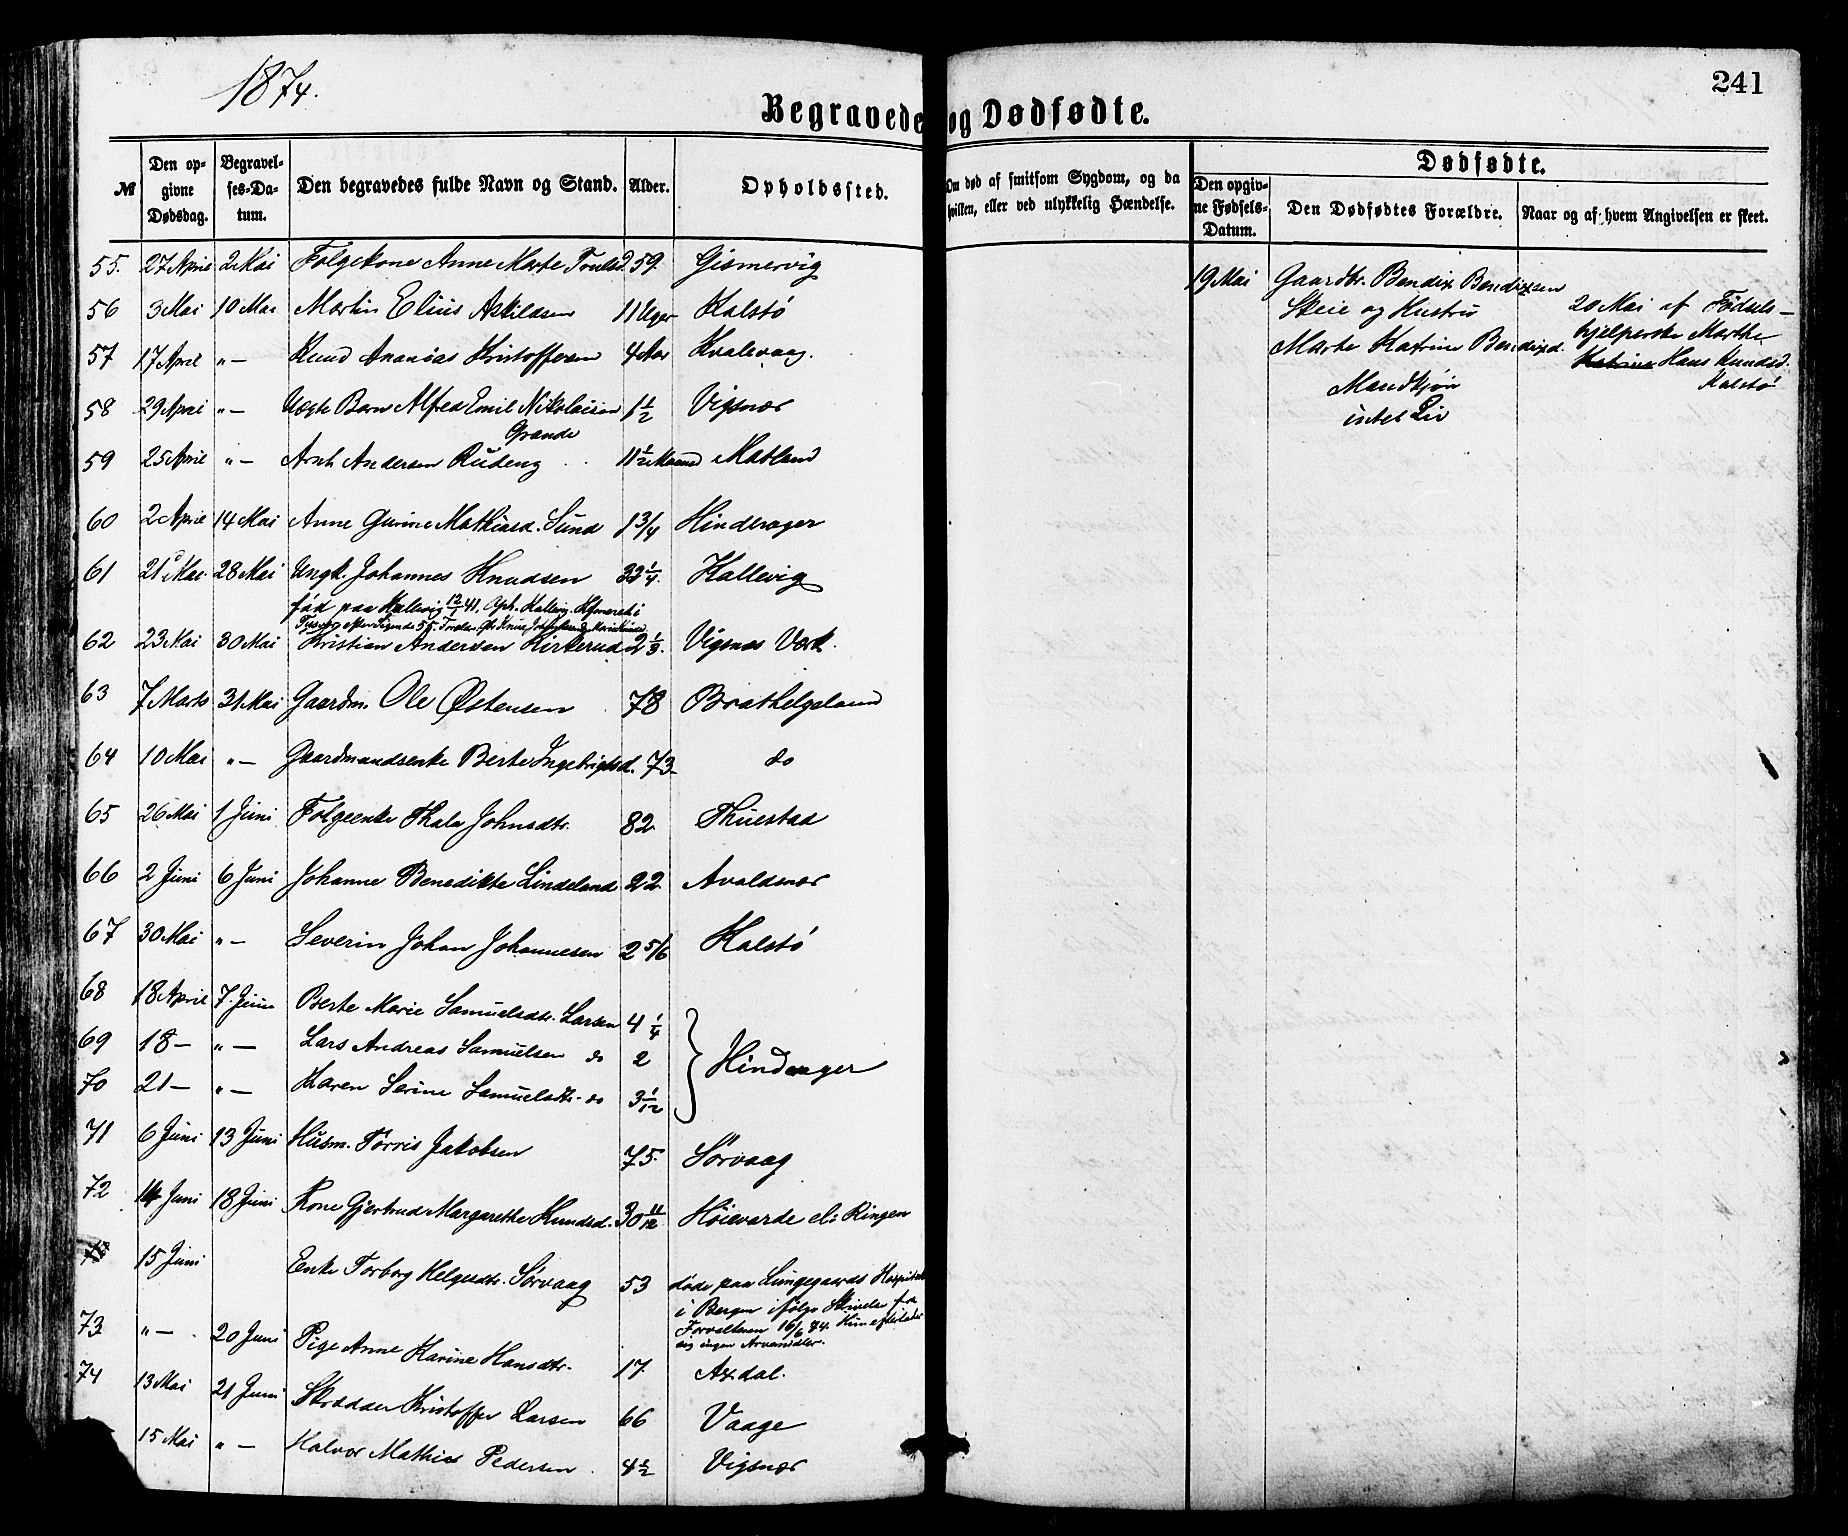 1874.
241
Begravede og Dødfødte.
№ Den opgivne Dødsdag. Begravelses-Datum. Den begravedes fulde Navn og Stand. Alder. Opholdssted. Om død af smitsom Sygdom, og da hvilken, eller ved ulykkelig Hændelse.
Dødfødte.
Den opgivne Fødsels-Datum. Den Dødfødtes Forældre. Naar og af hvem Angivelsen er skeet.
55. 27 April 2 Mai Folgekone Anne Marte Troulsd. 59. Gismervig
56 3 Mai 10 Mai Martin Elius Askildsen 11 Uger Kalstø
57 17 April "— Knud Ananias Kristoffersen 4 Aar Kvalevaag.
58 29 April "— Uægte Barn Alfred Emil Nikolaisen 1 1/2 Vigsnæs
Grande
59 25 April "— Arnt Andersen Rudeng 11 1/2 Maaned Matland
60 2 April 14 Mai Anne Gurine Mathiasd. Sund 1 3/4 Hinderager
61 21 Mai 28 Mai Ungk. Johannes Knudsen 32 1/4. Kallevig
fød paa Kallevig 12/1 41. Oph. Kallevig.
62 23 Mai 30 Mai Kristian Andersen Kirkerud 2 1/3. Vigsnæs Værk.
63 7 Marts 31 Mai Gaardm. Ole Østensen 78 Brathelgeland
64 10 Mai "— Gaardmandsenke Berte Ingebrigtsd. 73 do
65 26 Mai 1 Juni Folgeenke Thala Johnsdtr. 82 Thuestad
66 2 Juni 6 Juni Johanne Benedikte Lindeland 22 Avaldsnæs
67 30 Mai "— Severin Johan Johannesen 2 5/6 Kalstø
68 18 April 7 Juni Berte Marie Samuelsdtr. Larsen 4 1/4
69 18 — "— Lars Andreas Samuelsen do 2 Hinderager
70 21 — "— Karen Serine Samuelsdtr. do 3 1/12
71 6 Juni 13 Juni Husm. Tørris Jakobsen 75. Sørvaag
72 14 Juni 18 Juni Kone Gjertrud Margarethe Knudsd. 30 11/12 Høievarde el: Ringen
15 Juni Enke Torborg Helgesdtr. Sørvaag 53 døde paa Lungegaards Hospital
i Bergen ifølge Skrivelse fra
Forvalteren 16/6 74. Hun efterlader
sig ingen Arvemidler.
73 "— 20 Juni Pige Anne Karine Hansdtr. 17 Axdal.
74 13 Mai 21 Juni Skrædder Kristoffer Larsen 66 Vaage
15 Mai "— Halvor Mathias Pedersen 4 1/2 Vigsnæs
19 Mai Gaardbr. Bendix Bendixsen
Skeie og Hustru
Marte Katrine Bendixd.
Mandkjøn
intet Liv
20 Mai af Fødsels-
hjelperske Marthe
Katrine Hans Knudsd.
Kalstø